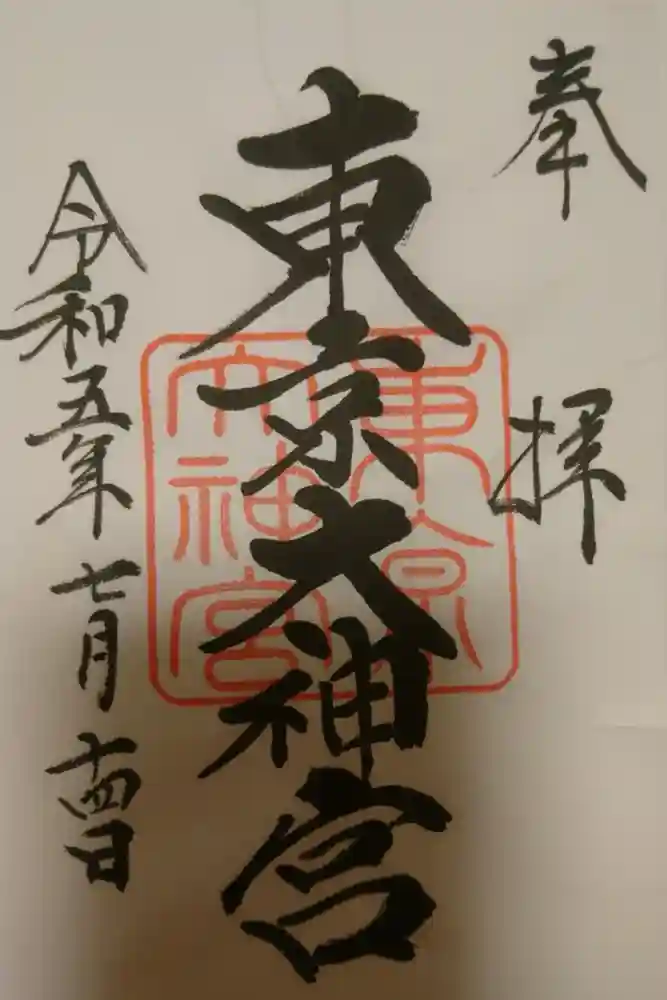 奉拝
東京大神宮
東京
大神宮
令和五年七月十四日